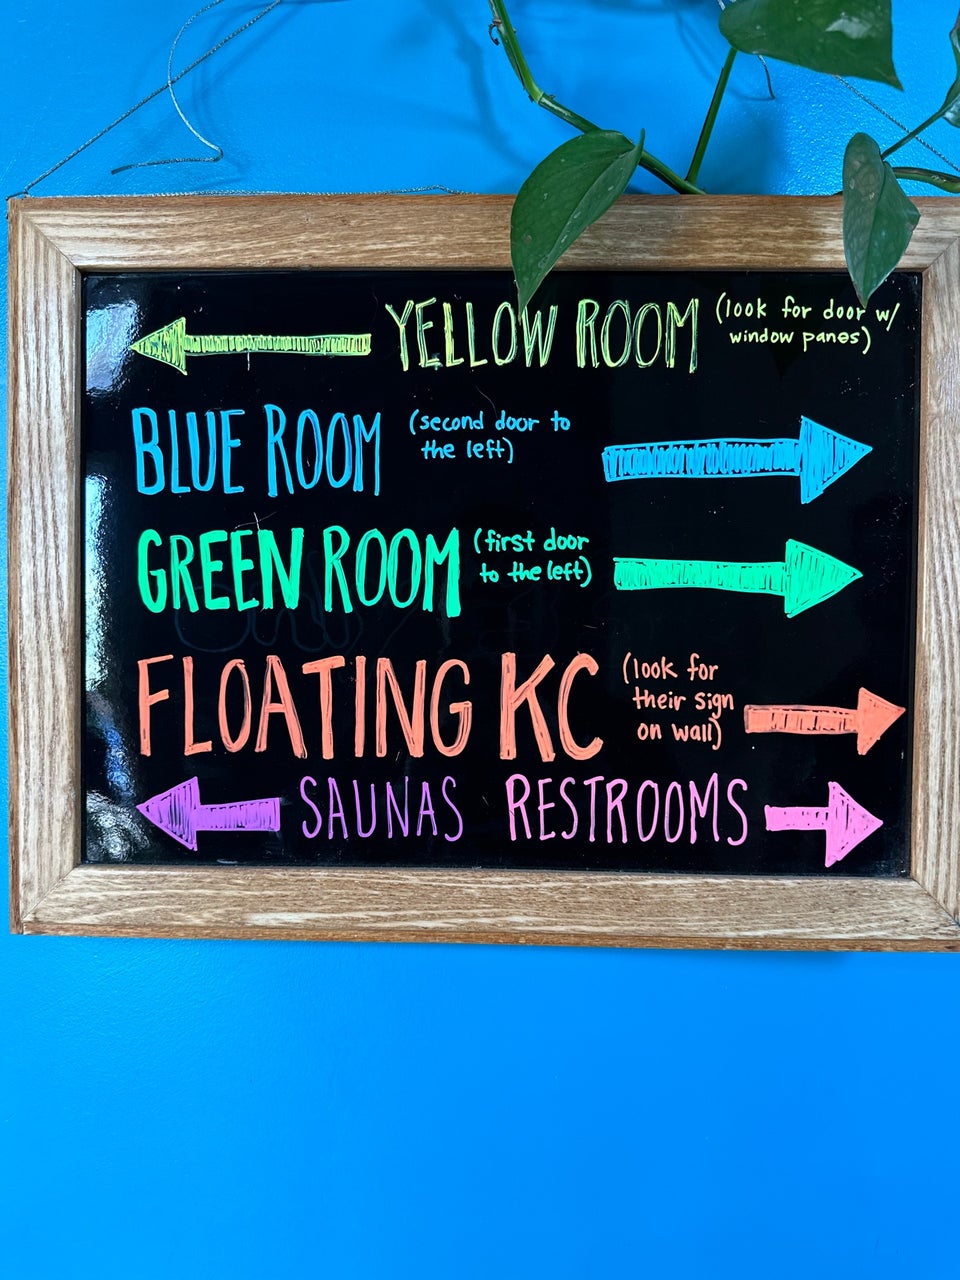 YELLOW ROOM (look for door w/
window panes)
BLUE ROOM (second door to
the left)
GREEN ROOM (first door
to the left)
FLOATING KC (look for
their sign
on wall)
SAUNAS RESTROOMS